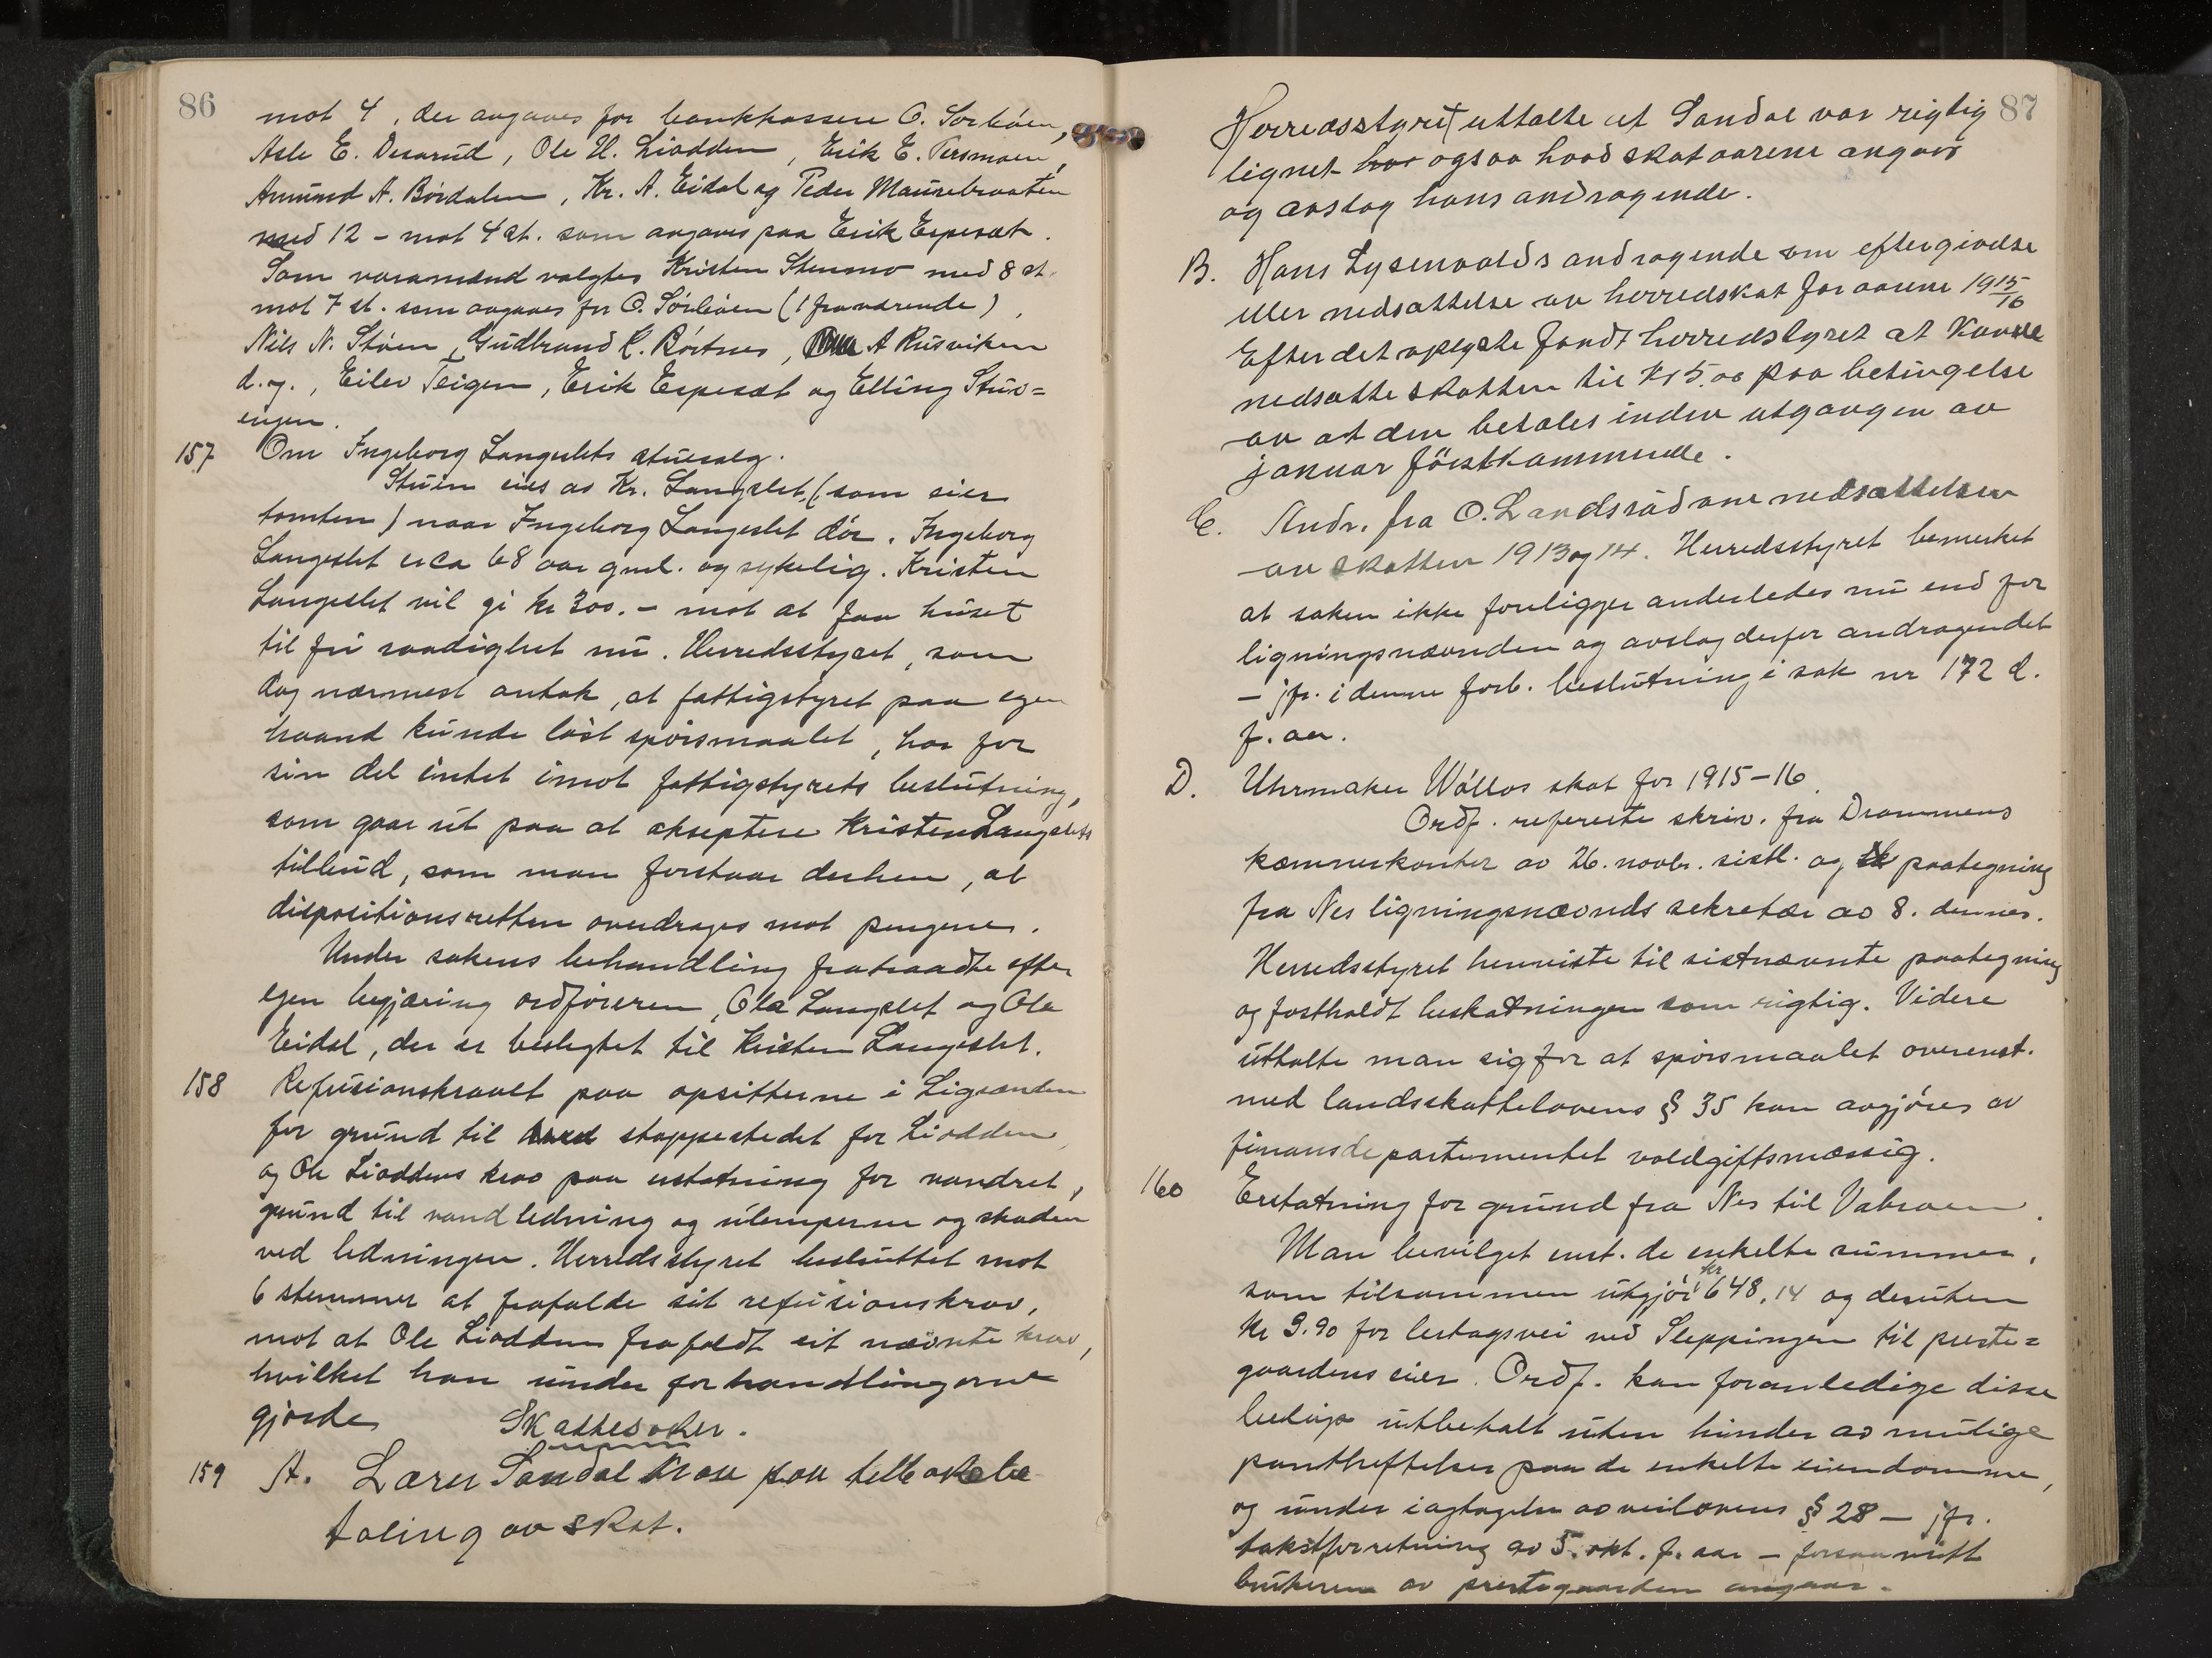 86
mot 4, der avgaves for bankkasserer O. Sørbøen,
Asle E. Desarud, Ole H. Liodden, Erik E.
Amund A. Børdalen, Kr. A. Eidal og Peder Maurebraaten
med 12 – mot 4 st. som avgaves paa Erik Espeset.
Som varamænd valgtes Kristen Stenmo med 8 st.
mot 7 st. som avgaves for O. Sørbøen (1 fraværende),
Nils N. Støen, Gudbrand K. Børtnes, A Rusviken
d. y., Eilev Teigen, Erik Espeset og Elling Stuv=
engen.
157 Om Ingeborg Langslets stuesalg.
Stuen eies av Kr. Langslet, (som eier
tomten) naar Ingeborg Langeslet dør. Ingeborg
Langeslet er ca 68 aar gml. og sykelig. Kristen
Langeslet vil gi kr 300.– mot at faa huset
til fri raadighet nu. Herredsstyret, som
dog nærmest antok, at fattigstyret paa egen
haand kunde løst spørsmaalet, har for
sin del intet imot fattigstyrets beslutning,
som gaar ut paa at akseptere Kristen Langslets
tilbud, som man forstaar derhen, at
dispositionsretten overdrages mot pengene.
Under sakens behandling fratraadte efter
egen begjæring ordføreren, Ola Langslet og Ole
Eidal, der er beslegtet til Kristen Langeslet.
158 Refusionskravet paa opsitterne i Ligrænden
for grund til stoppestedet for Liodden
og Ole Lioddens krav paa erstatning for vandret,
grund til vandledning og ulemperne og skaden
ved ledningen. Herredsstyret besluttet mot
6 stemmer at frafalde sit refusionskrav,
mot at Ole Liodden frafaldt sit nævnte krav,
hvilket han under forhandlingerne
gjorde.
Skattesaker.
159 A. Lærer Sandal krav paa tilbakebe
taling av skat.
87
Herredsstyret uttalte at Sandal var rigtig
lignet ogsaa hvad skataarene angaar
og avslog hans andragende.
B. Hans Lysenvolds andragende om eftergivelse
eller nedsættelse av herredskat for aarene 1915/16
Efter det oplyste fandt herredstyret at kunde
nedsætte skatten til kr 5.00 paa betingelse
av at den betales inden utgangen av
januar førstkommende.
C. Andr. fra O. Landsrud om nedsættelsen
av skatten 1913 og 14. Herredsstyret bemerket
at saken ikke foreligger anderledes nu end for
ligningsnævnden og avslog derfor andragendet
– jfr. i denne forb. beslutning i sak nr 172 d.
f. aar.
D. Uhrmaker Wøllos skat for 1915–16.
Ordf. refererte skriv. fra Drammens
kæmnerkontor av 26. novbr. sistl. og paategning
fra Nes ligningsnævnds sekretær av 8. dennes.
Herredsstyret henviste til sistnævnte paategning
og fastholdt beskatningen som rigtig. Videre
uttalte man sig for at spørsmaalet overenst.
med landsskattelovens § 35 kan avgjøres av
finansdepartementet voldgiftsmæssig.
160 Erstatning for grund fra Nes til Vabraaen.
Man bevilget enst. de enkelte summer,
som tilsammen utgjør kr 648,14 og desuten
kr 9.90 for lertagsvei ved Sleppingen til preste=
gaardens eier. Ordf. kan foranledige disse
beløp utbetalt uten hinder av mulige
pantheftelser paa de enkelte eiendomme,
og under iagtagelse av veilovens § 28 – jfr.
takstforretning av 5. okt. f. aar – forsaavidt
brukeren av prestegaarden angaar.